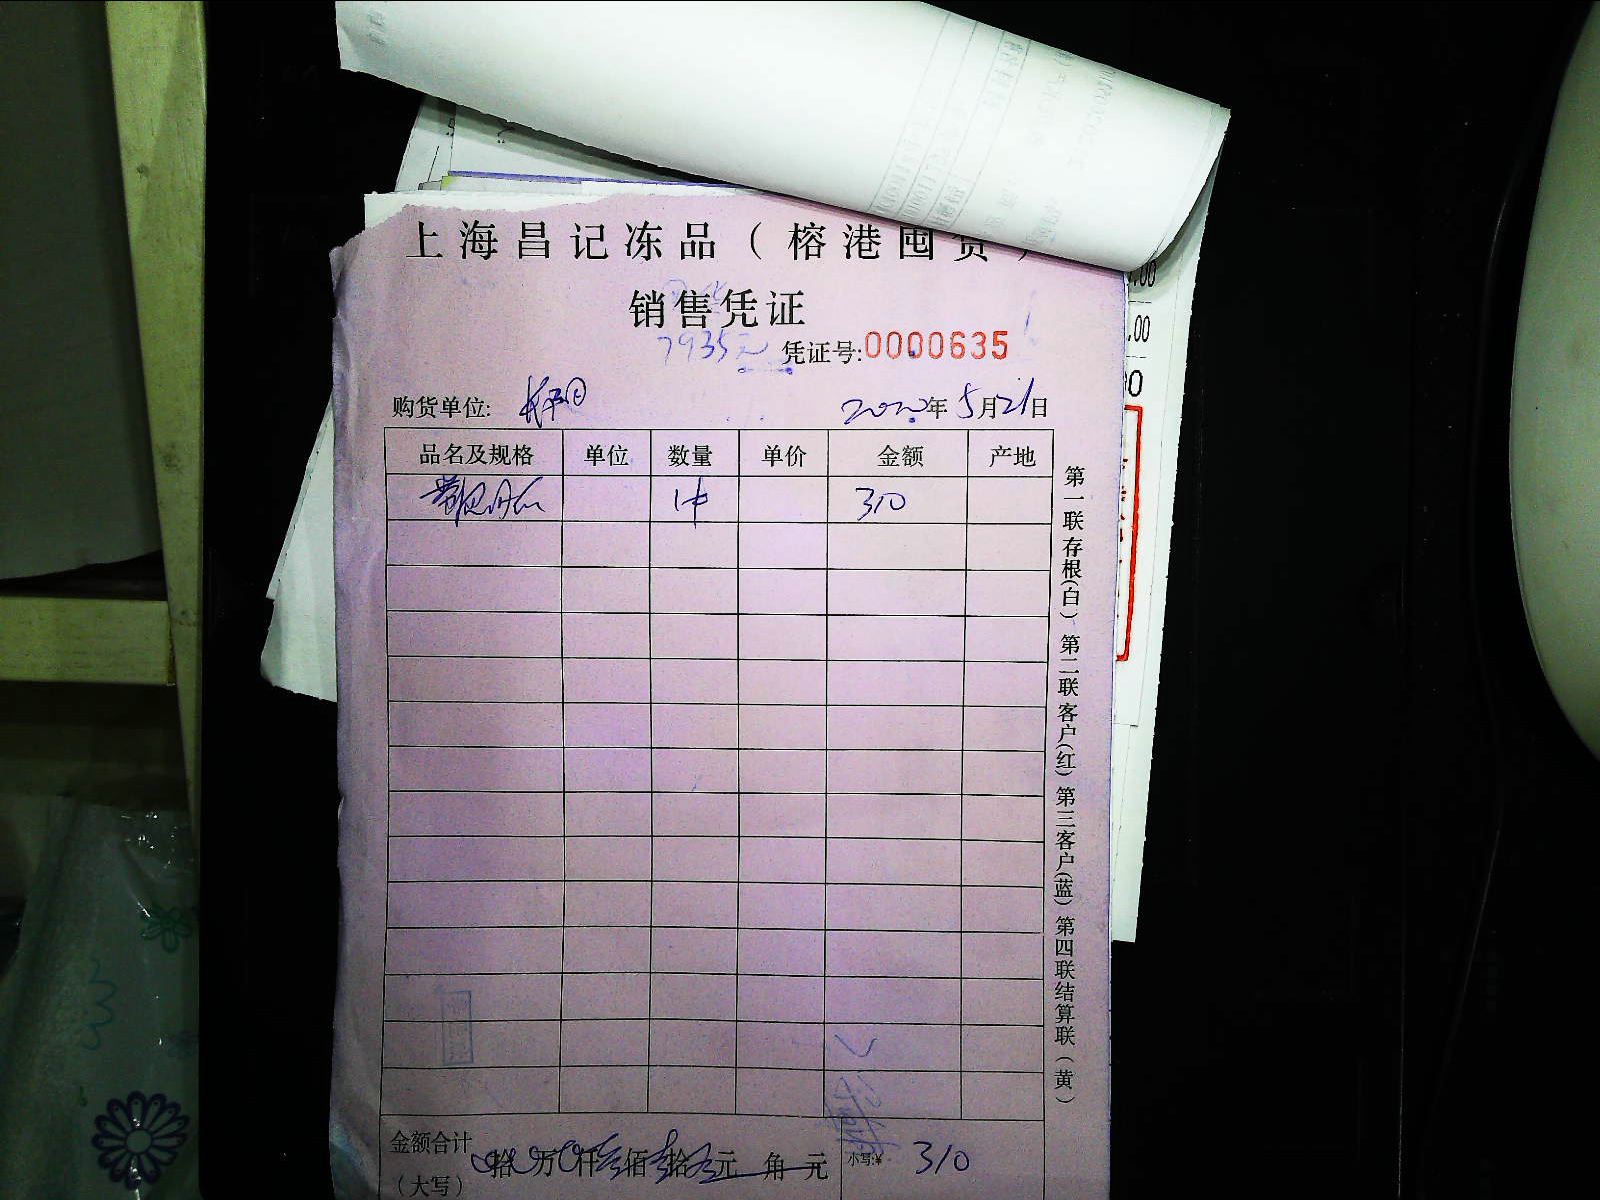 上海昌记冻品（榕港囤货）
销售凭证
7935元 凭证号:0000635
购货单位: 2020年5月21日
品名及规格 单位 数量 单价 金额 产地
1件 310
金额合计 拾 万 仟 佰 拾 元 角 元 小写:¥ 310
（大写）
第一联存根(白) 第二联客户(红) 第三客户(蓝) 第四联结算联(黄)
.00
.00
00